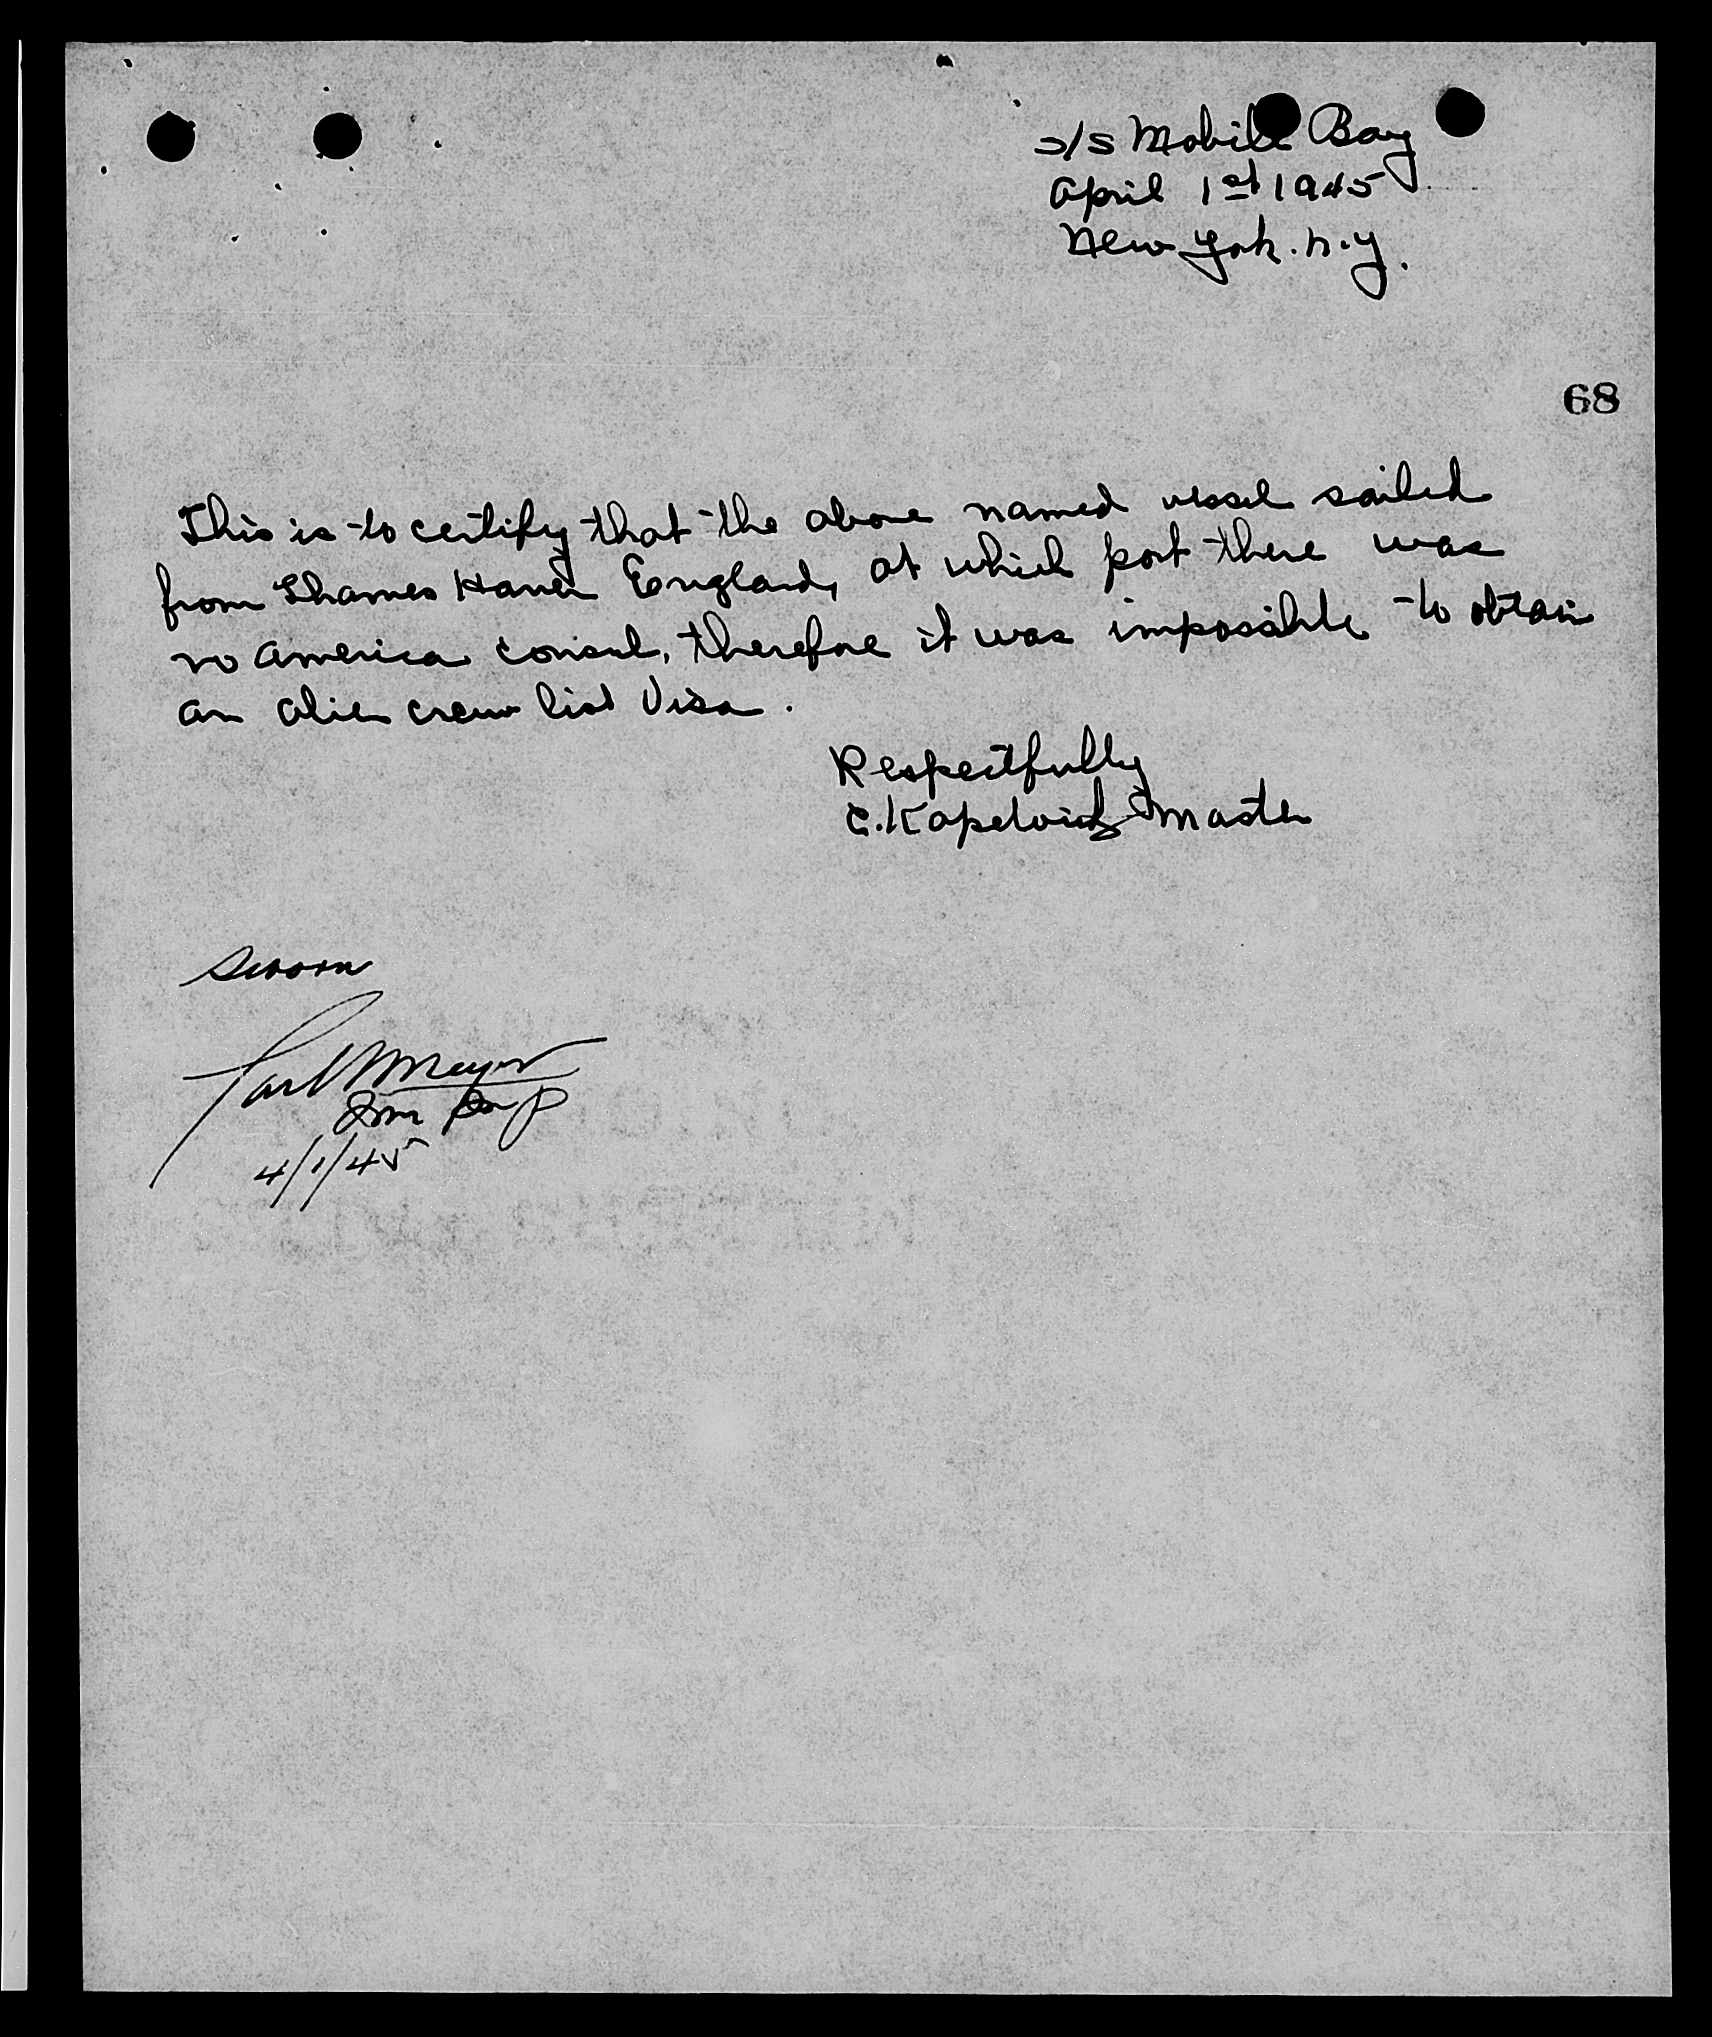 s/s Mobile Bay
April 1st 1945
New York. N.Y.
68
This is to certify that the above named vessel sailed
from Thames Haven England, at which port there was
no America consul, therefore it was impossible to obtain
an alien crew list Visa.
Respectfully
C. Kapelvich Master
Sworn
Meyer
Imm Insp
4/1/45